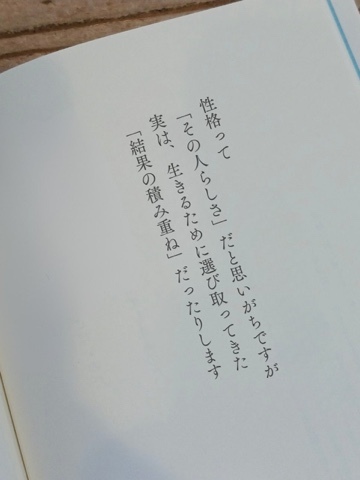 性格って
「その人らしさ」だと思いがちですが
実は、生きるために選び取ってきた
「結果の積み重ね」だったりします